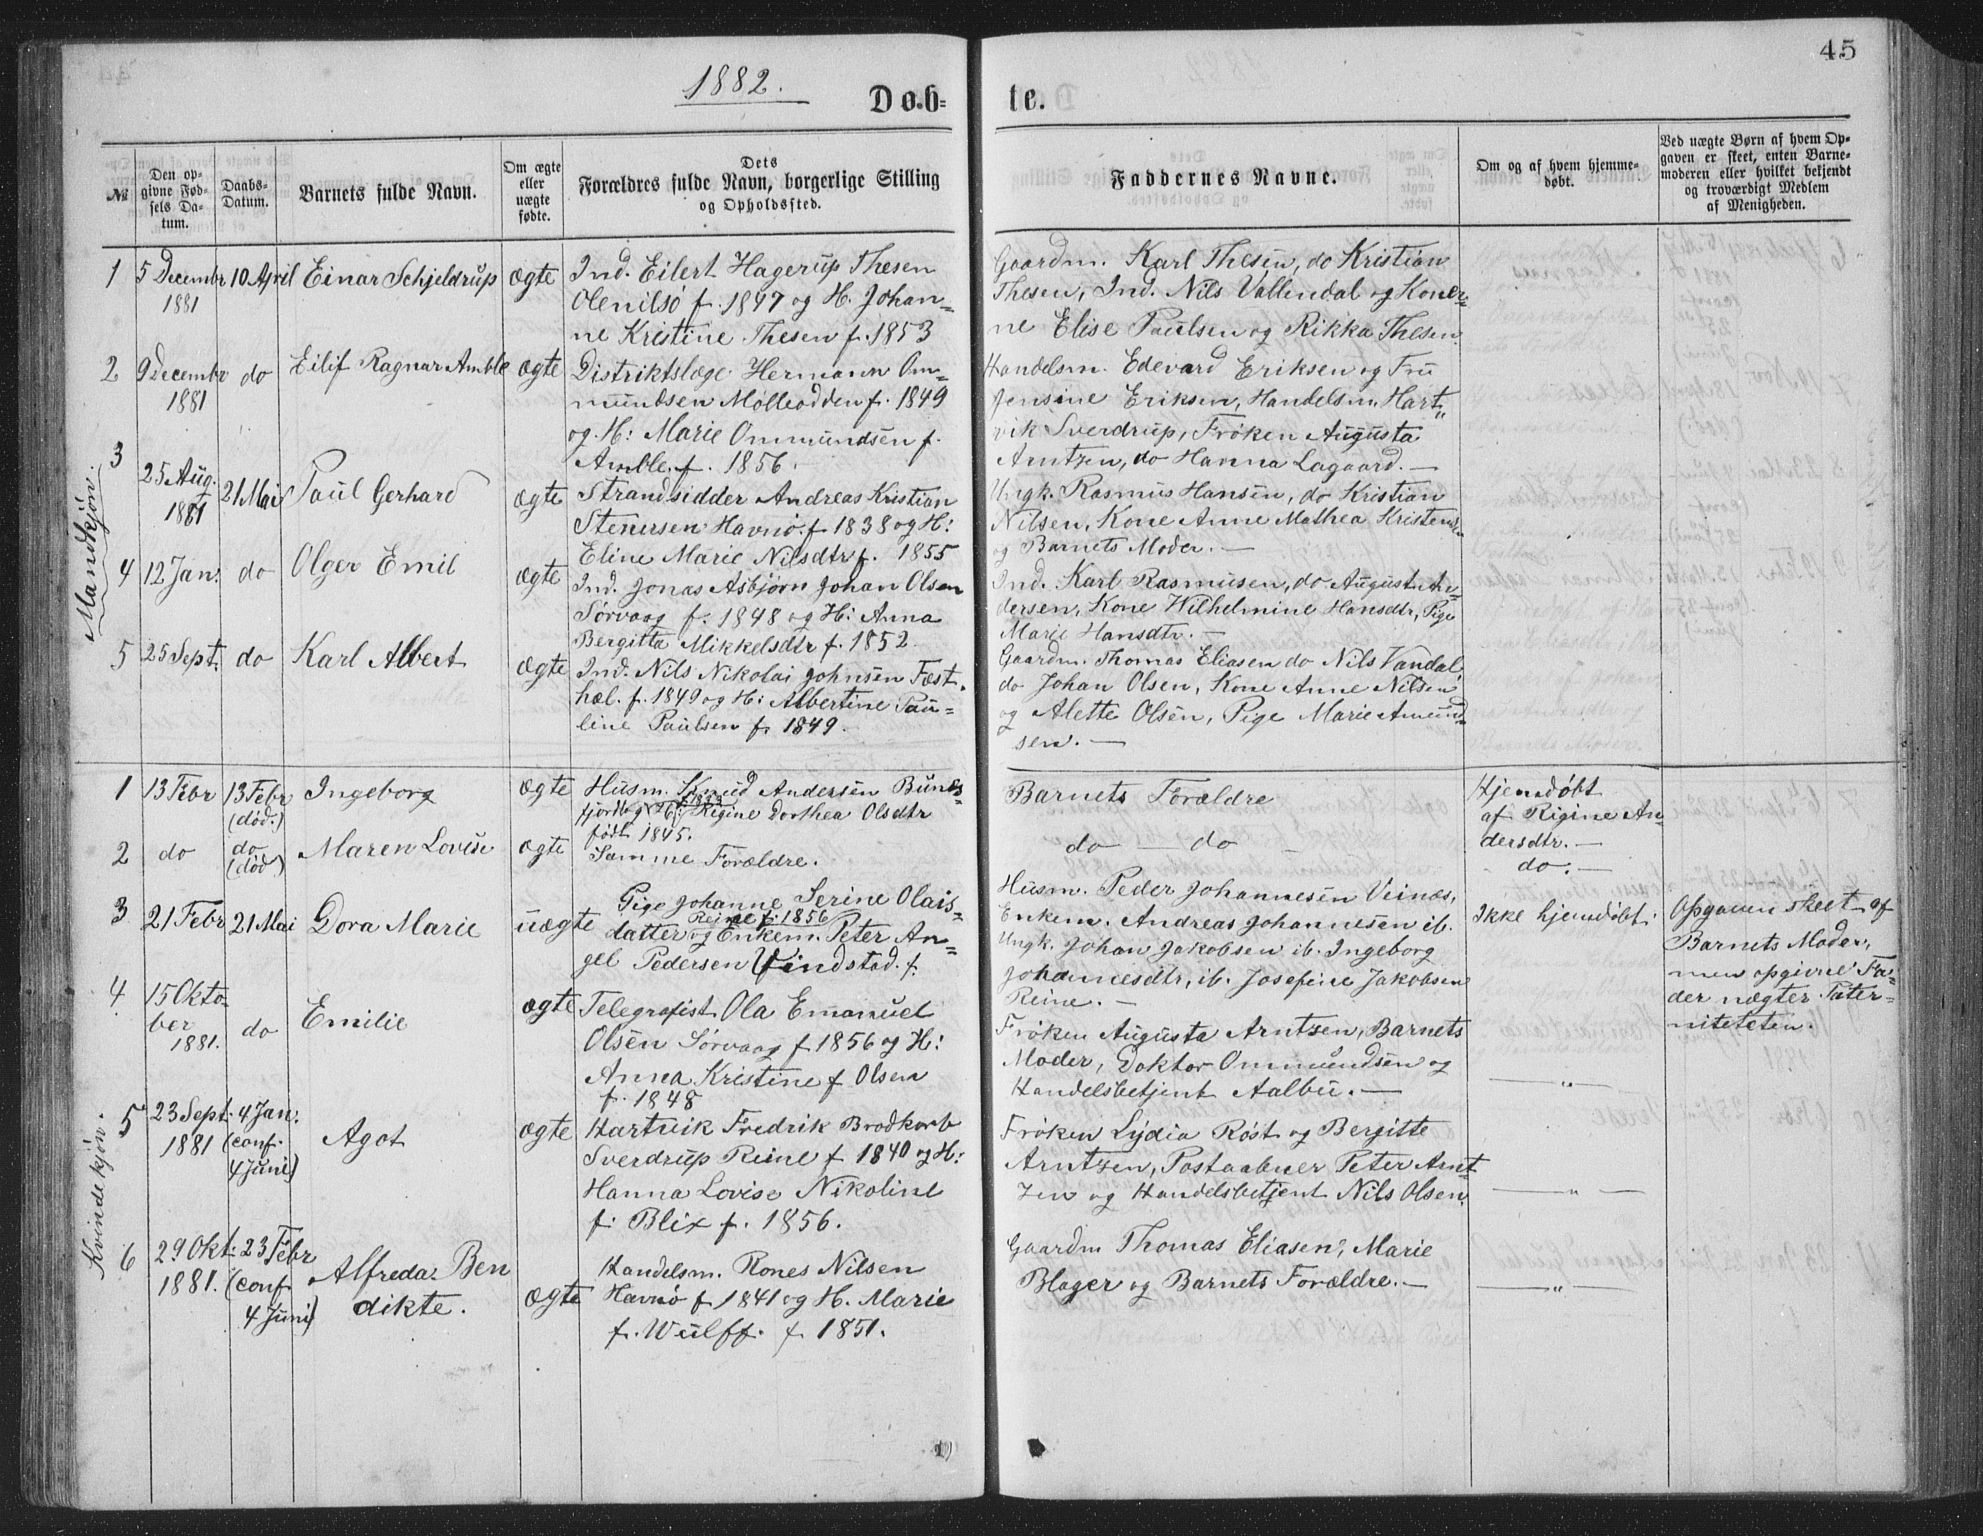 45
1882.
Døb=
te.
№
Den op-
givne Fød-
sels Da-
tum.
Daabs-
Datum.
Barnets fulde Navn.
Om ægte
eller
uægte
fødte.
Dets
Forældres fulde Navn, borgerlige Stilling
og Opholdssted.
Faddernes Navne.
Om og af hvem hjemme-
døbt.
Ved uægte Børn af hvem Op-
gaven er skeet, enten Barne-
moderen eller hvilket bekjendt
og troværdigt Medlem
af Menigheden.
Mandkjøn.
1
5 Decembr
1881
10 April
Einar Schjeldrup
ægte
Ind. Eilert Hagerup Thesen
Olenilsø f. 1847 og H. Johan=
ne Kristine Thesen f. 1853
Gaardm. Karl Thesen, do Kristian
Thesen, Ind. Nils Vallendal og Koner=
ne Elise Paulsen og Rikka Thesen.
2
9 Decembr
1881
do
Eilif Ragnar Amble
ægte
Distriktslæge Hermann Om=
mundsen Mølleodden f. 1849
og H: Marie Ommundsen f.
Amble f. 1856.
Handelsm. Edevard Eriksen og Fru
Jensine Eriksen, Handelsm. Hart=
vik Sverdrup, Frøken Augusta
Arntzen, do Hanna Lagaard. —
3
25 Aug.
1881
21 Mai
Paul Gerhard
ægte
Strandsidder Andreas Kristian
Stenersen Havnø f. 1838 og H:
Eline Marie Nilsdtr f. 1855
Ungk. Rasmus Hansen, do Kristian
Nilsen, Kone Anne Mathea Kristensen
og Barnets Moder. —
4
12 Jan:
do
Olger Emil
ægte
Ind. Jonas Asbjørn Johan Olsen
Sørvaag f. 1848 og H: Anna
Bergitta Mikkelsdtr f. 1852.
Ind. Karl Rasmusen, do August An=
dersen, Kone Wilhelmine Hansdtr, Pige
Marie Hansdtr. —
5
25 Sept.
do
Karl Albert
ægte
Ind. Nils Nikolai Johnsen Fæst=
hæl. f. 1849 og H: Albertine Pau=
line Paulsen f. 1849.
Gaardm. Thomas Eliasen do Nils Vandal,
do Johan Olsen, Kone Anne Nilsen
og Alette Olsen, Pige Marie Amund=
sen. —
Kvindekjøn.
1
13 Febr
13 Febr
(død.)
Ingeborg
ægte
Husm. Knud Andersen Bunes=
fjord og H: Regine Dorthea Olsdtr
født 1845.
Barnets Forældre
Hjemdøbt
af Rigine An=
dersdtr. —
2
do
do
(død.)
Maren Lovise
ægte
Samme Forældre.
do — do —
do. —
3
21 Febr
21 Mai
Dora Marie
uægte
Pige Johanne Serine Olais=
Reine f. 1856
datter og Enkem. Peter An=
gel Pedersen Vindstad. f.
Husm. Peder Johannesen Veinæs,
Enkem. Andreas Johannesen ib.
Ungk. Johan Jakobsen ib. Ingeborg
Johannesdtr, ib. Josefine Jakobsen
Reine. —
Ikke hjemdøbt.
Opgaven skeet af
Barnets Moder,
men opgivne Fa=
der nægter Pater=
niteteten.
4
15 Okto=
ber
1881.
do
Emilie
ægte
Telegrafist Ola Emanuel
Olsen Sørvaag f 1856 og H:
Anna Kristine f Olsen
f. 1848
Frøken Augusta Arntzen, Barnets
Moder, Doktor Ommundsen og
Handelsbetjent Aalbu. —
— „ —
5
23 Sept.
1881
4 Jan:
(conf.
4 Juni)
Agot
ægte
Hartvik Fredrik Brodkorb
Sverdrup Reine f 1840 og H:
Hanna Lovise Nikoline
f. Blix f. 1856.
Frøken Lydia Røst og Bergitte
Arntzen, Postaabner Peter Arnt
zen og Handelsbetjent Nils Olsen.
— „ —
6
29 Okt:
1881.
23 Febr
(conf
4 Juni)
Alfreda Ben
dikte.
ægte
Handelsm. Rones Nilsen
Havnø f 1841 og H. Marie
f. Wulff. f 1851.
Gaardm Thomas Eliasen, Marie
Blager og Barnets Forældre. —
— „ —